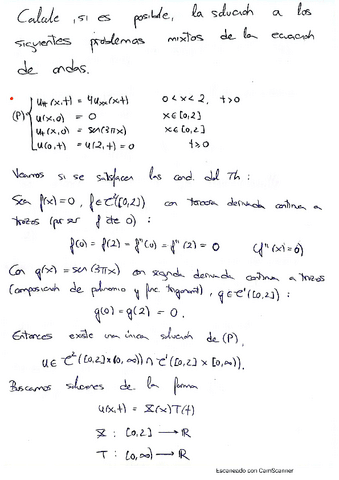 Calcule, si es posible, la solución a los
siguientes problemas mixtos de la ecuación
de ondas.
(P) { u_tt(x,t) = 4u_xx(x,t)    0<x<2, t>0
u(x,0) = 0    x∈[0,2]
u_t(x,0) = sen(3πx)    x∈[0,2]
u(0,t) = u(2,t) = 0    t>0
Veamos si se satisfacen las cond. del Th:
Sea f(x)=0, f∈C²([0,2]) con tercera derivada continua a
trozos (por ser f cte 0):
f(0) = f(2) = f''(0) = f''(2) = 0    (f''(x)=0)
Con g(x) = sen(3πx) con segunda derivada continua a trozos
(composición de polinomio y func. trigonomet), g∈C¹([0,2]):
g(0) = g(2) = 0.
Entonces existe una única solución de (P),
u∈ C²([0,2]x(0,∞)) ∩ C¹([0,2]x[0,∞)).
Buscamos soluciones de la forma
u(x,t) = X(x)T(t)
X : [0,2] → ℝ
T : [0,∞) → ℝ
Escaneado con CamScanner